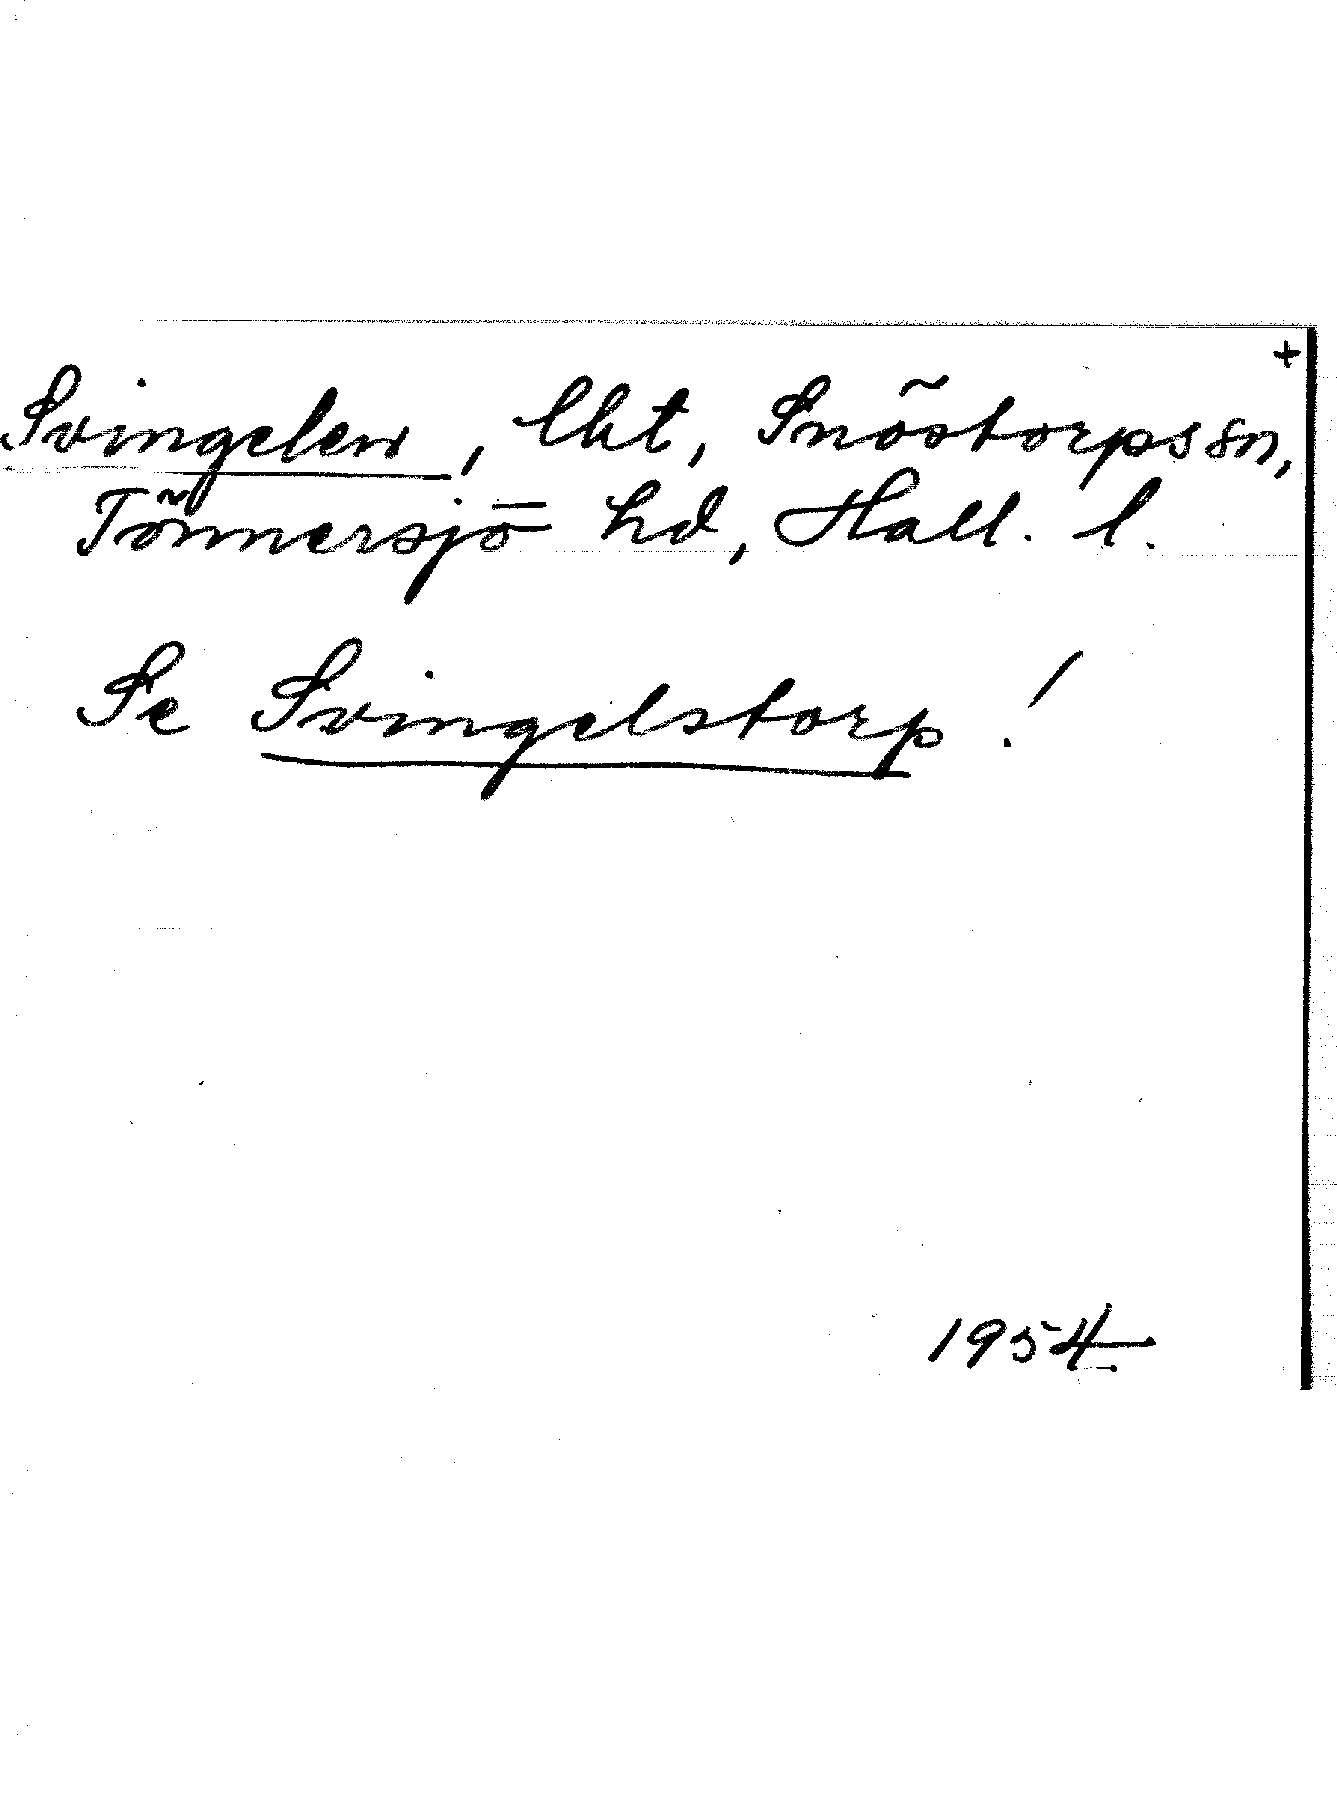 +
Svingelen, lht, Snöstorps sn,
Tönnersjö hd, Hall. l.
Se Svingelstorp!
1954